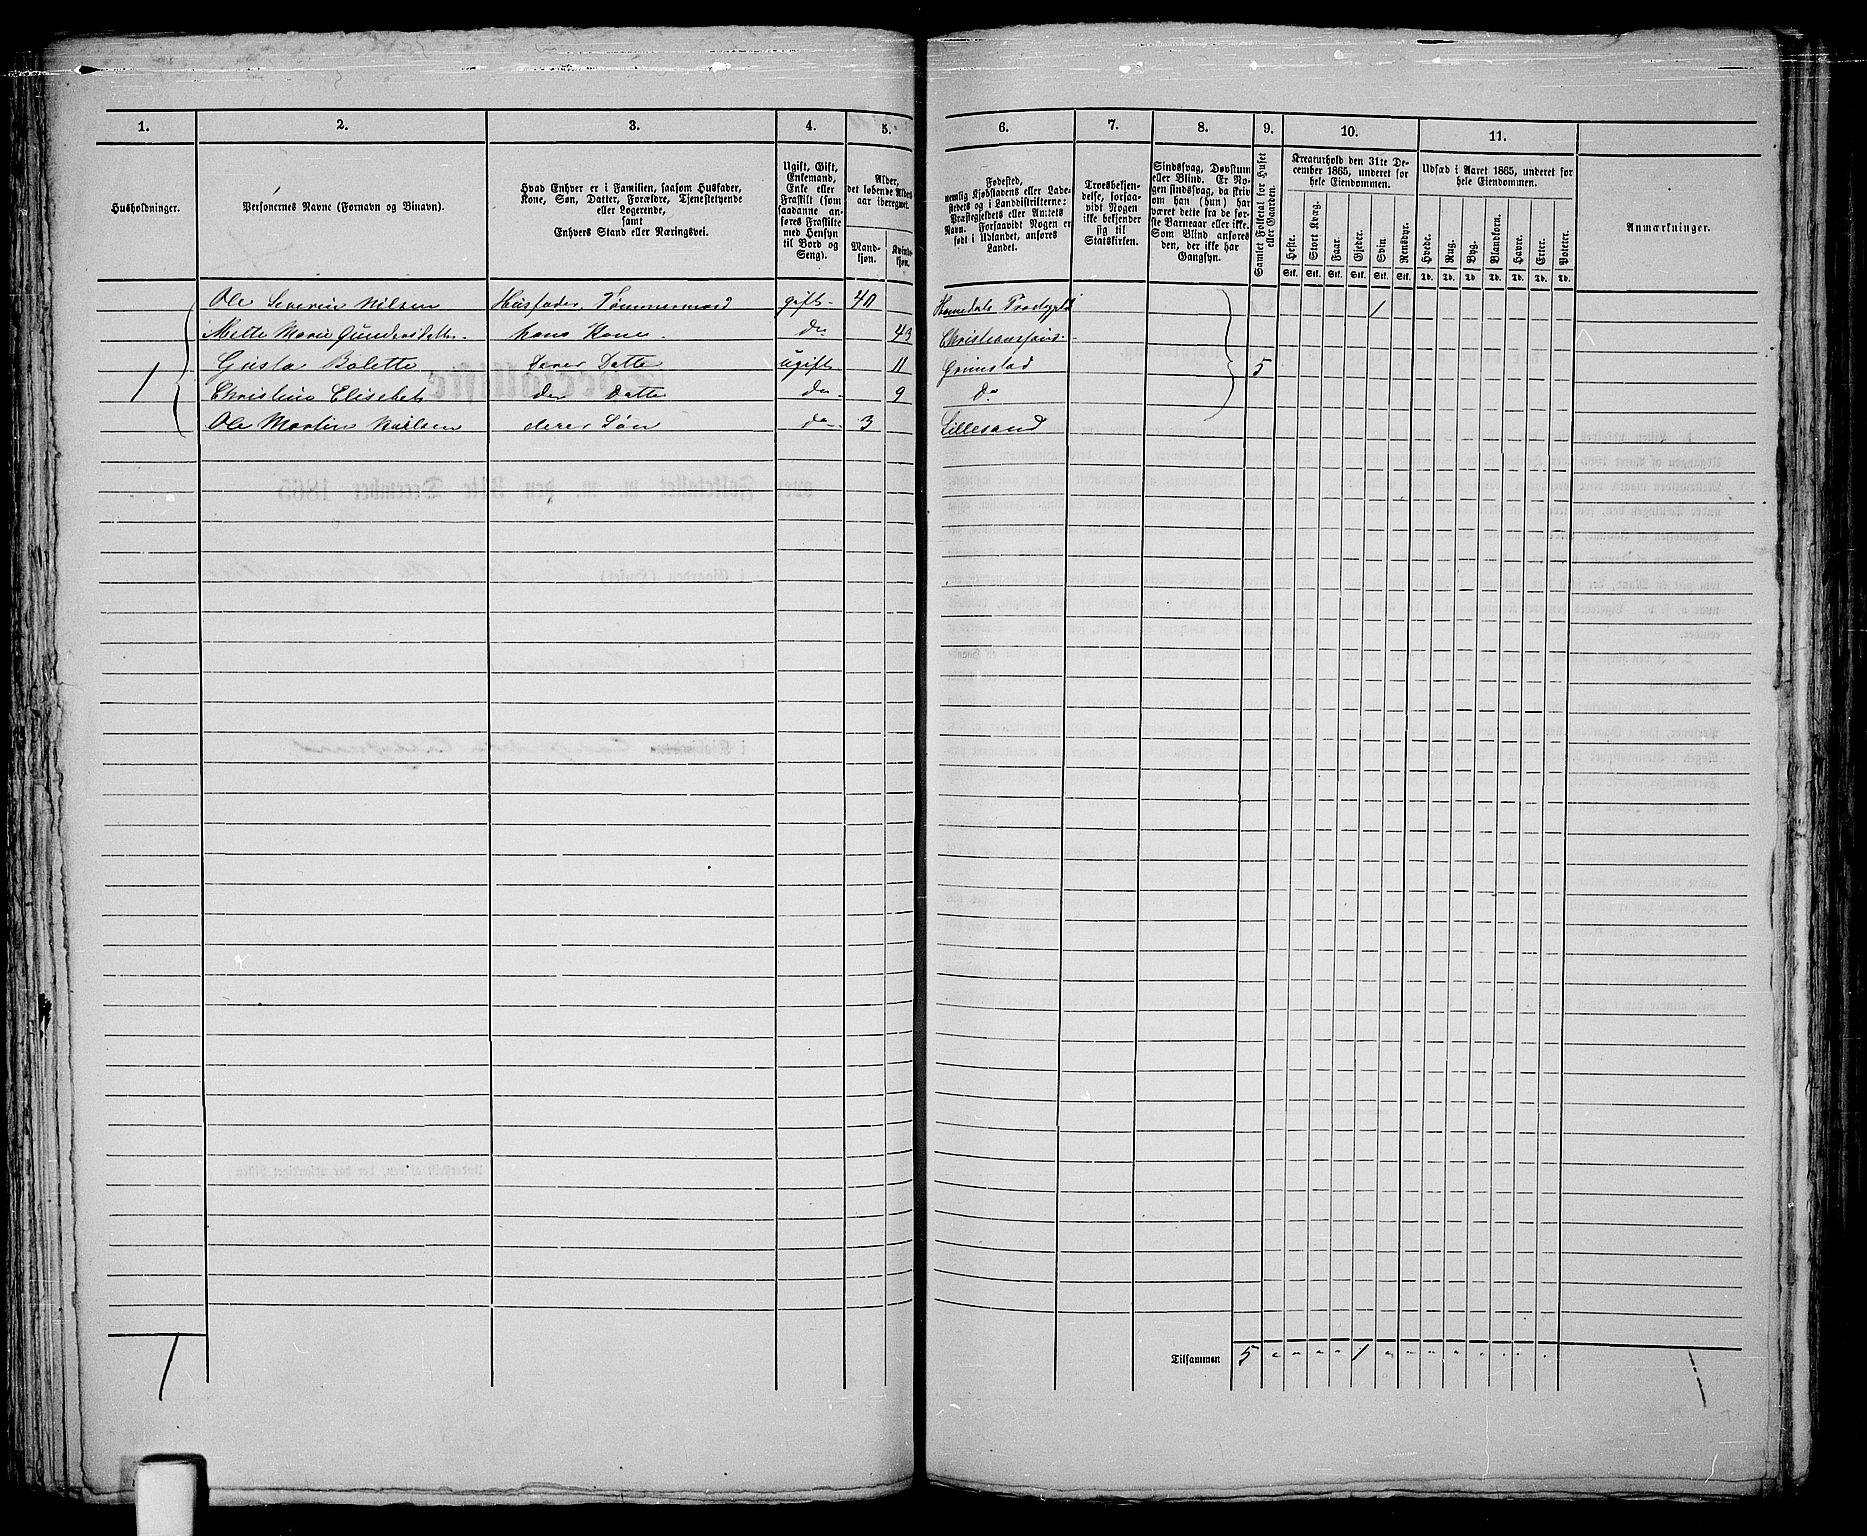 1. 2. 3. 4. 5. 6. 7. 8. 9. 10. 11.
Husholdninger.
Personernes Navne (Fornavn og Binavn).
Hvad Enhver er i Familien, saasom Husfader,
Kone, Søn, Datter, Forældre, Tjenestetyende
eller Logerende,
samt
Enhvers Stand eller Næringsvei.
Ugift, Gift,
Enkemand,
Enke eller
Fraskilt (som
saadanne an-
føres Fraskilte
med Hensyn
til Bord og
Seng).
Alder,
det løbende Alders-
aar iberegnet.
Mand-
kjøn.
Kvinde-
kjøn.
Fødested,
nemlig Kjøbstadens eller Lade-
stedets og i Landdistrikterne:
Præstegjeldets eller Amtets
Navn. Forsaavidt Nogen er
født i Udlandet, anføres
Landet.
Troesbekjen-
delse, forsaa-
vidt Nogen
ikke bekjender
sig til
Statskirken.
Sindssvag, Døvstum
eller Blind. Er No-
gen sindssvag, da skriv
om han (hun) har
været dette fra de før-
ste Barneaar eller ikke.
Som Blind anføres
den, der ikke har
Gangsyn.
Samlet Folketal for Huset
eller Gaarden.
Kreaturhold den 31te De-
cember 1865, underet for
hele Eiendommen.
Heste. Stort Kvæg. Faar. Gjeder. Svin. Rensdyr.
Stk. Stk. Stk. Stk. Stk. Stk.
Udsæd i Aaret 1865, underet for
hele Eiendommen.
Hvede. Rug. Byg. Blandkorn. Havre. Erter. Poteter.
Td. Td. Td. Td. Td. Td. Td.
Anmærkninger.
Ole Severin Nilsen Husfader, Tømmermand gift 40 1
Mette Marie Gundersdatter hans Kone do 43
Gusta Bolette deres Datte ugift 11 Grimstad 5
1 Christine Elisabet der Datte do 9 Do
Ole Martin Nielsen deres Søn do 3 Lillesand
1 Tilsammen 5 1